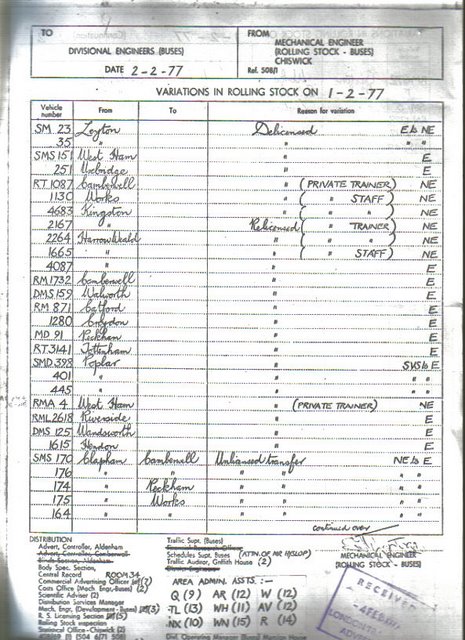 TO
DIVISIONAL ENGINEERS (BUSES)
DATE 2-2-77
FROM
MECHANICAL ENGINEER
(ROLLING STOCK - BUSES)
CHISWICK
Ref. 508/1
VARIATIONS IN ROLLING STOCK ON 1-2-77
Vehicle number From To Reason for variation
SM 23 Leyton Delicensed E to NE
35 " " " "
SMS 151 West Ham " E
251 Uxbridge " E
RT 1087 Camberwell " (PRIVATE TRAINER) NE
1130 Works " ( " STAFF) NE
4683 Kingston " ( " " ) NE
2167 " Relicensed ( " TRAINER) NE
2264 Harrow Weald " ( " " ) NE
1665 " " ( " STAFF) NE
4087 " " E
RM 1732 Camberwell " E
DMS 159 Walworth " E
RM 871 Catford " E
1280 Croydon " E
MD 91 Peckham " E
RT 3141 Tottenham " E
SMD 398 Poplar " SVS to E
401 " " " "
445 " " " "
RMA 4 West Ham " (PRIVATE TRAINER) NE
RML 2618 Riverside " E
DMS 125 Wandsworth " E
1615 Hendon " E
SMS 170 Clapham Camberwell Unlicensed transfer NE to E
176 " " " " "
174 " Peckham " " "
175 " Works " " "
164 " " " " "
continued over
DISTRIBUTION
Advert. Controller, Aldenham
Advert. Controller, Camberwell
Body Spec. Section,
Central Record ROOM 34
Commercial Advertising Officer
Costs Office (Mech. Engr.-Buses) (2)
Scientific Adviser (2)
Distribution Services Manager
Mech. Engr. (Development - Buses) (3)
R. S. Licensing Section
Statistical Office-Chiswick (2)
Traffic Supt. (Buses)
Schedules Supt. Buses (ATTN. OF MR HISLOP)
Traffic Auditor, Griffith House (2)
AREA ADMIN. ASSTS :-
Q (9) AR (12) W (12)
TL (13) WH (11) AV (12)
NX (10) WN (15) R (14)
MECHANICAL ENGINEER
(ROLLING STOCK - BUSES)
RECEIVED